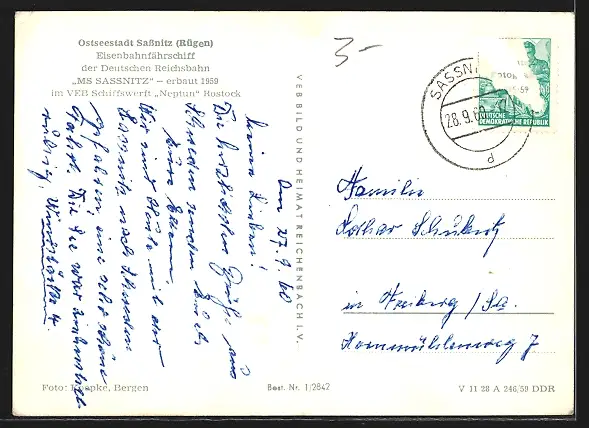 Ostseestadt Saßnitz (Rügen)
Eisenbahnfährschiff
der Deutschen Reichsbahn
„MS SASSNITZ" – erbaut 1959
im VEB Schiffswerft „Neptun" Rostock
Den 27.9.60
Meine Lieben!
Die herzlichsten Grüße aus
Schweden senden Euch,
Eure Eltern.
Wir sind heute mit der
Sassnitz nach Schweden
gefahren, eine sehr schöne
Fahrt. Die See war
ruhig, Windstärke 4.
VEB BILD UND HEIMAT REICHENBACH I. V.
3-
SASSNI
28.9.60
d
DEUTSCHE
DEMOKRATISCHE REPUBLIK
Familie
Lothar
in Freiberg / Sa.
7
Foto: Knospke, Bergen
Best. Nr. 1/2842
V 11 28 A 246/59 DDR